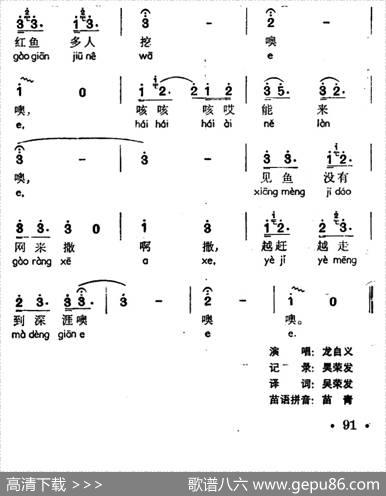 红鱼 多人 挖 噢
gào giān jiū nē wā e
1 0 1 2. 2 1 2 3 5. 3 2
噢， 咳 咳 咳哎 能 来
e, hái hái hái ài nē làn
3 - 3 3 3. 1 2.
噢， 见 鱼 没有
e. xiāng mèng jí dáo
3 3. 3 0 1 3. 3 3. 2 3.
网 来 撒 啊 撒， 越赶 越 走
gào ràng xē a xe, yè jǐ yè mēng
2 3. 3 3. 3 - 2 - 1 0
到 深 涯噢 噢 噢。
mà dèng giān e e e.
演 唱：龙自义
记 录：吴荣发
译 词：吴荣发
苗语拼音：苗 青
• 91 •
高清下载 >>> 歌谱八六 www.gepu86.com